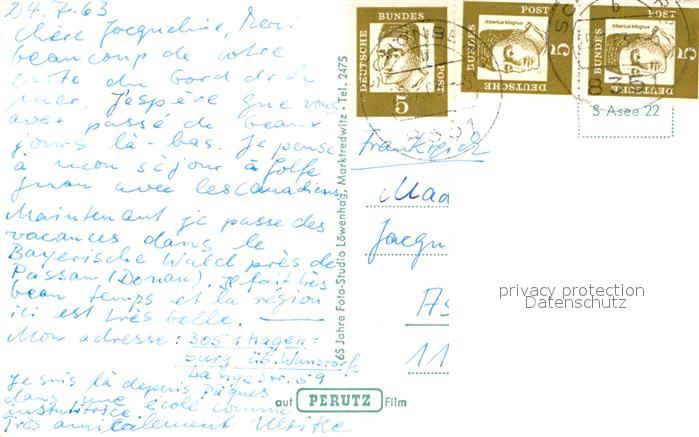 24.7.63
Chère Jacqueline, Merci
beaucoup de votre
carte du bord de la
mer. J'espère que vous
avez passé de beaux
jours là-bas. Je pense
à mon séjour à Golfe
Juan avec les Canadiens.
Maintenant je passe des
vacances dans le
Bayerische Wald près de
Passau (Donau). Il fait très
beau temps et la région
ici est très belle.
Mon adresse: 3051 Hagen-
burg üb. Wunstorf
Lange Str. 59
Je suis là depuis Pâques
dans une école comme
institutrice.
Très amicalement Ulrike
65 Jahre Foto-Studio Löwenhag, Marktredwitz · Tel. 2475
DEUTSCHE BUNDES POST
5
Albertus Magnus
DEUTSCHE BUNDES POST
5
Albertus Magnus
DEUTSCHE BUNDES POST
5
S Asee 22
Frankreich
Mad
Jacqu
As
11
privacy protection
Datenschutz
auf PERUTZ Film